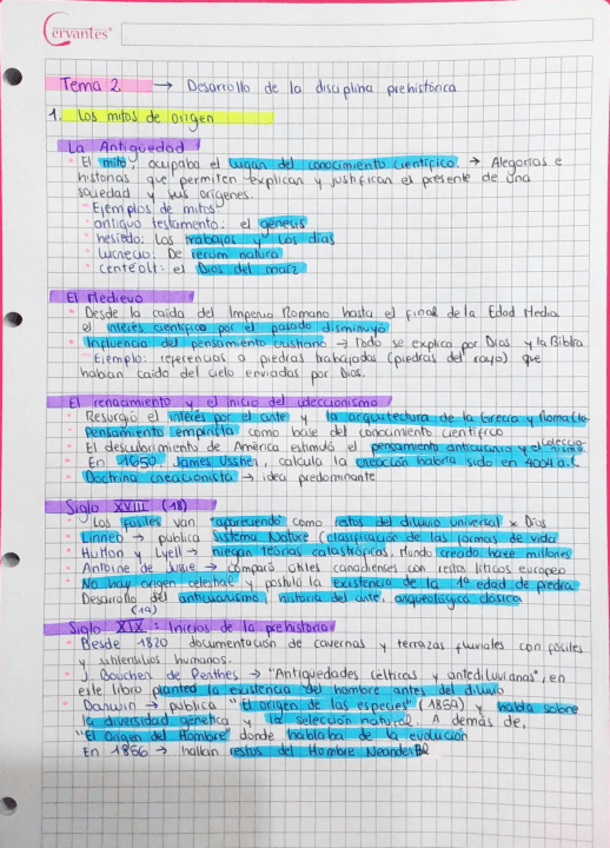 Cervantes®
Tema 2. → Desarrollo de la disciplina prehistórica
1. Los mitos de origen
La Antigüedad
El mito, ocupaba el lugar del conocimiento científico. → Alegorías e
historias que permiten explican y justifican el presente de una
sociedad y sus orígenes.
Ejemplos de mitos:
antiguo testamento: el génesis
hesiedo: Los trabajos y los días
Lucrecio: De rerum natura
centéolt: el Dios del maíz
El Medievo
Desde la caída del Imperio Romano hasta el final de la Edad Media
el interés científico por el pasado disminuyó
Influencia del pensamiento cristiano → Todo se explica por Dios y la Biblia
Ejemplo: referencias a piedras trabajadas (piedras del rayo) que
habían caído del cielo enviadas por Dios.
El renacimiento y el inicio del coleccionismo
Resurgió el interés por el arte y la arquitectura de la Grecia y Roma Cla.
Pensamiento empirista como base del conocimiento científico
El descubrimiento de América estimuló el pensamiento anticuario y el coleccionismo.
En 1650, James Ussher, calcula la creación habría sido en 4004 a.C
Doctrina creacionista → idea predominante
Siglo XVIII (18)
Los fósiles van "apareciendo" como restos del diluvio universal x Dios
Linneo → publica Sistema Nature (clasificación de las formas de vida
Hutton y Lyell → niegan teorías catastróficas, Mundo creado hace millones
Antoine de Jusie → comparó útiles canadienses con restos líticos europeo
No hay origen celestial y postula la existencia de la 1ª edad de piedra
Desarrollo del anticuarismo, historia del arte, arqueológica clásica
(19)
Siglo XIX: Inicios de la prehistoria
Desde 1820 documentación de cavernas y terrazas fluviales con fósiles
y utensilios humanos.
J. Boucher de Perthes → "Antiquedades célticas y antediluvianas", en
este libro planted la existencia del hombre antes del diluvio
Darwin → publica "El origen de las especies" (1859) y habla sobre
la diversidad genética y la selección natural. A demás de,
"El Origen del Hombre" donde hablaba de la evolución
En 1856 → hallan restos del Hombre Neandertal